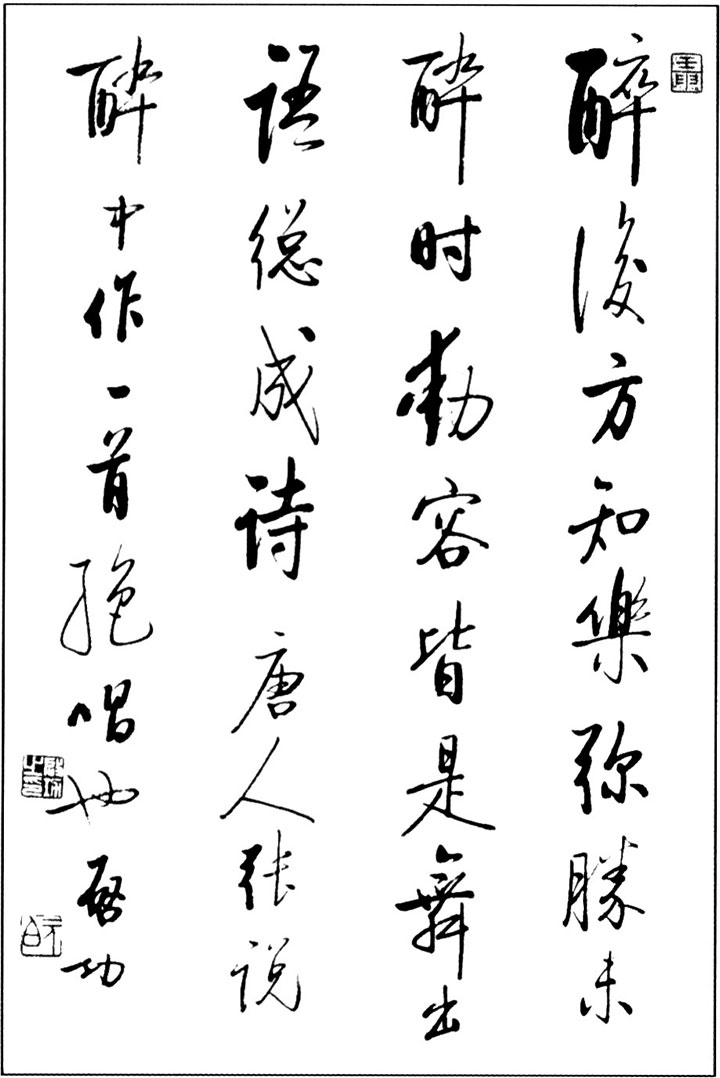 醉後方知樂弥勝未
醉时動容皆是舞出
语總成诗唐人张说
醉中作一首绝唱也启功
元白